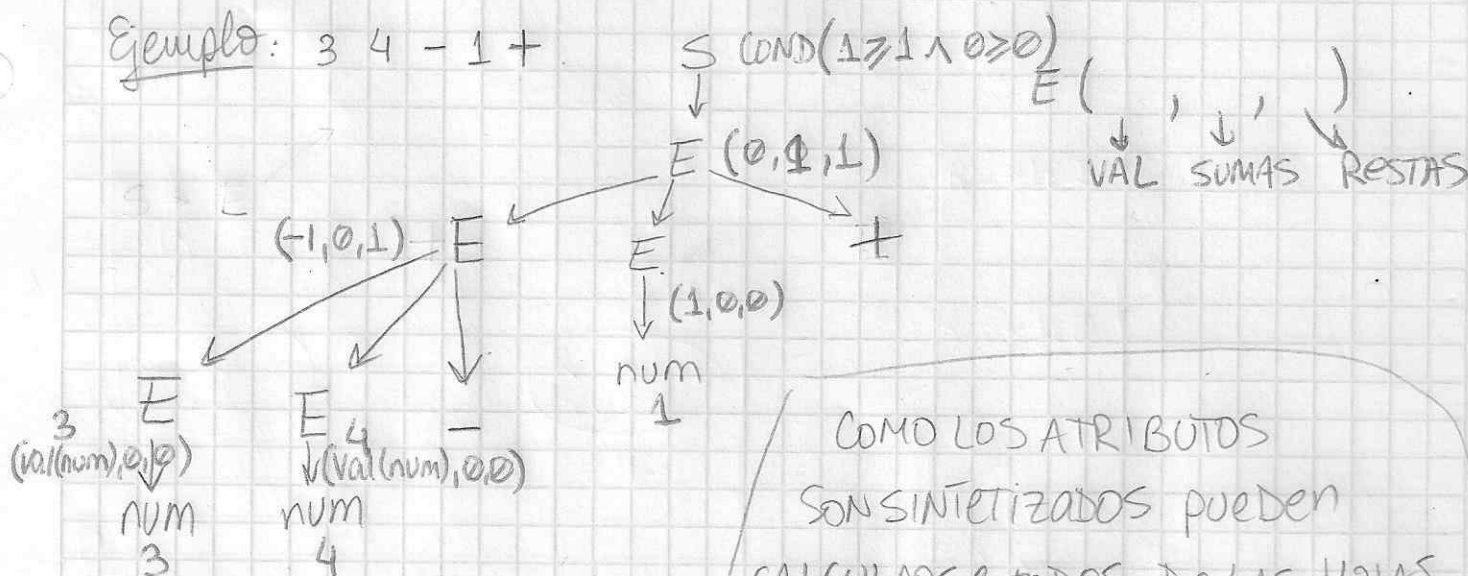 Ejemplo: 3 4 - 1 + S COND(1≥1 ∧ 0≥0)
E ( , , )
VAL SUMAS RESTAS
E (0,1,1)
(-1,0,1) E E +
(1,0,0)
num
1
E E -
3 4
(val(num),0,0) (val(num),0,0)
num num
3 4
COMO LOS ATRIBUTOS
SON SINTETIZADOS PUEDEN